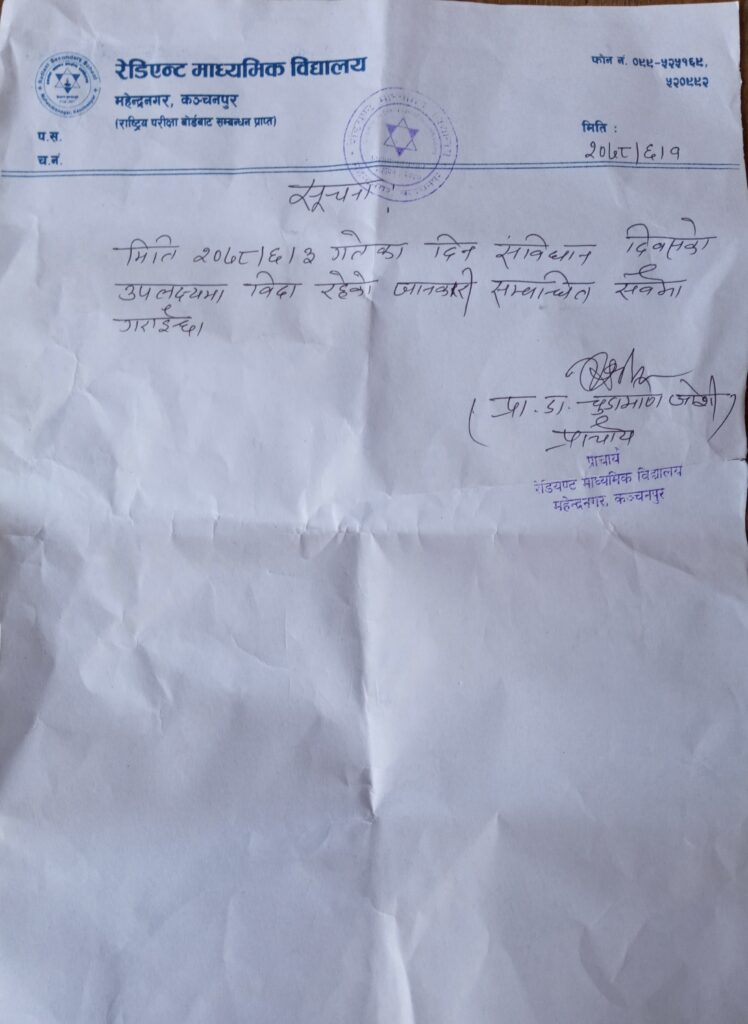 Radiant Secondary School
रेडिएन्ट माध्यमिक विद्यालय
महेन्द्रनगर, कञ्चनपुर
(राष्ट्रिय परीक्षा बोर्डबाट सम्बन्धन प्राप्त)
फोन नं. ०९९-५२५१६९,
५२०९९२
प.स.
च.नं.
मिति :
२०७८/६/१
सूचना !
मिति २०७८/६/३ गतेका दिन संविधान दिवसको
उपलक्ष्यमा विदा रहेको जानकारी सम्बन्धित सर्वैमा
गराईन्छ।
(प्रा. डा. चुडामणि जोशी)
प्राचार्य
प्राचार्य
रेडियण्ट माध्यमिक विद्यालय
महेन्द्रनगर, कञ्चनपुर